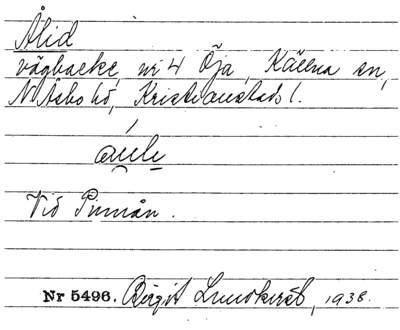 Ålid
vägbacke, nr 4 Öja, Källna sn,
N Åsbo hd, Kristianstads l.
Vid Pinnån.
Nr 5496. Birgit Lundkvist, 1938.